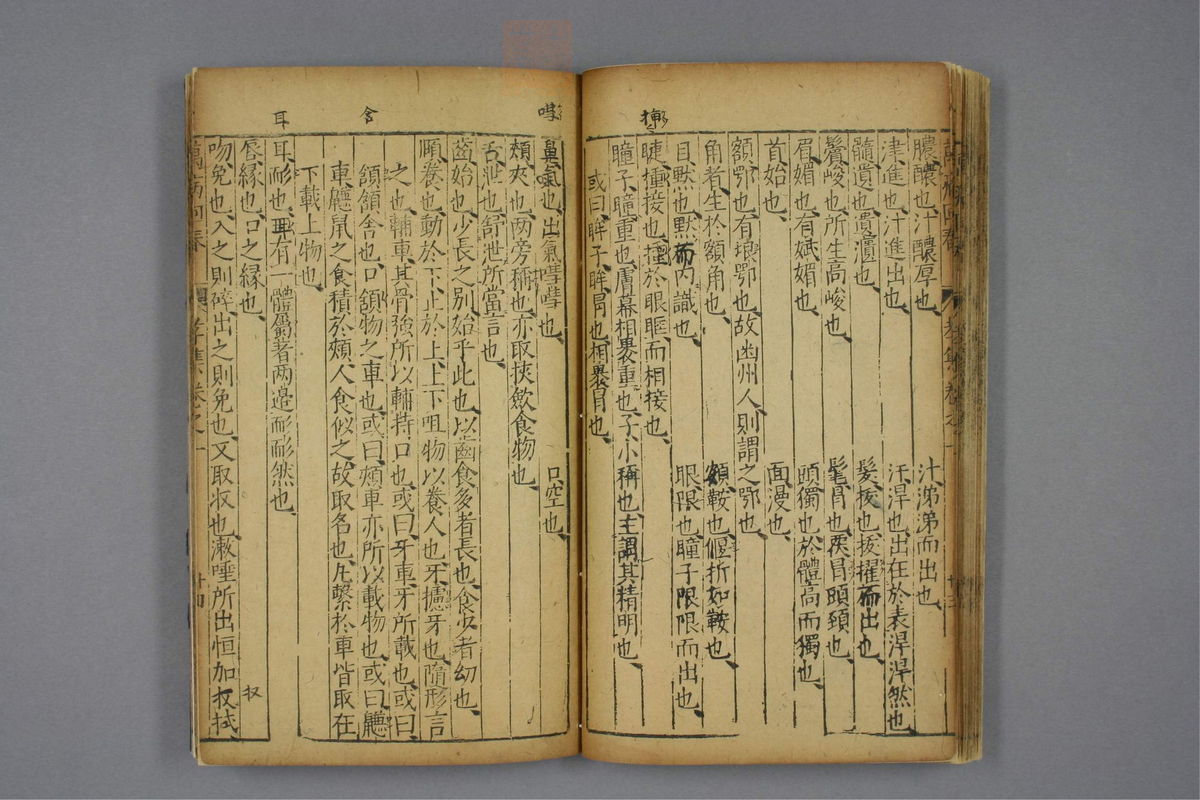 膿醲也汁醲厚也 汁涕涕而出也
津進也汁進出也 汗浮也出在於表浮浮然也
髓遺也遺瀢也 髮拔也拔擢而出也
鬢峻也所生高峻也 髦冒也覆冒頭頸也
眉媚也有嫵媚也 頭獨也於體高而獨也
首始也 面漫也
額鄂也有垠鄂也故幽州人則謂之鄂也
角者生於額角也 頞鞍也偃折如鞍也
目默也默而內識也 眼限也瞳子限限而出也
睫插接也插於眼眶而相接也
瞳子瞳重也膚幕相褁重也子小稱也主謂其精明也
或曰眸子眸冒也相褁冒也
鼻氣也出氣嘒嘒也 口空也
頰夾也两旁稱也亦取挾歛食物也
舌泄也舒泄所當言也
齒始也少長之別始乎此也以齒食多者長也食少者幼也
頤養也動於下止於上上下咀物以養人也牙攎牙也隨形言
之也輔車其骨強所以輔持口也或曰牙車牙所載也或曰
頷頷舎也口頷物之車也或曰頰車亦所以載物也或曰鼸
車鼸鼠之食積於頰人食似之故取名也凡繫於車皆取在
下載上物也
耳耏也耳有一體屬著两邉耏耏然也
唇縁也口之縁也
吻免也入之則碎出之則免也又取収也漱唾所出恒加抆拭